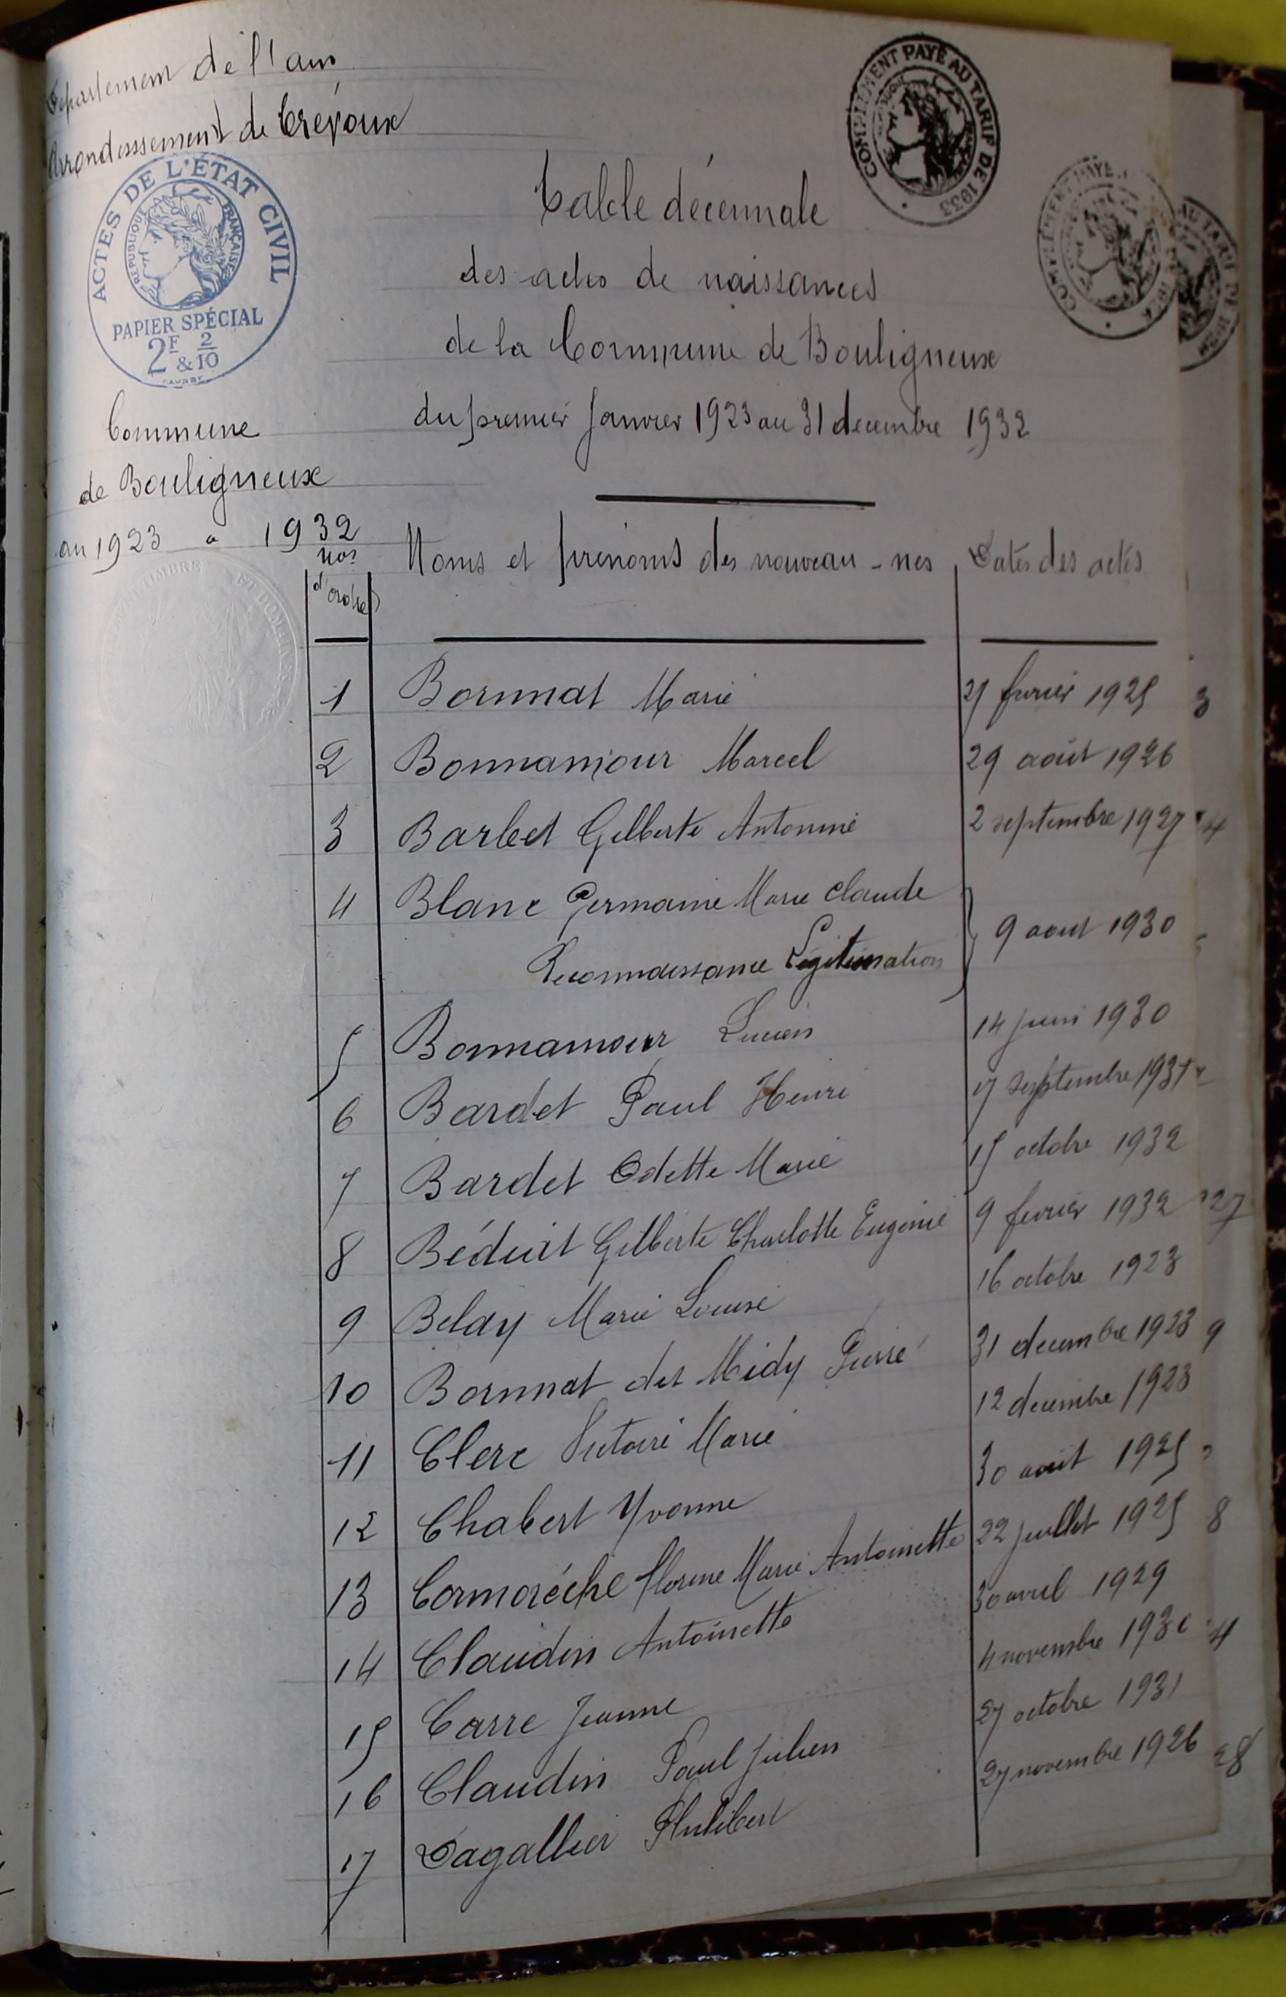 Département de l'ain
Arrondissement de Trévoux
COMPLEMENT PAYÉ AU TARIF DE 1933
ACTES DE L'ÉTAT CIVIL
REPUBLIQUE FRANÇAISE
PAPIER SPÉCIAL
2F & 2/10
Table décennale
des actes de naissances
de la Commune de Bouligneux
du premier Janvier 1923 au 31 decembre 1932
Commune
de Bouligneux
an 1923 a 1932
nos d'ordre Noms et prénoms des nouveau-nes Dates des actes
1 Bornnat Marie 27 fevrier 1925
2 Bonnamour Marcel 29 août 1926
3 Barbet Gilberte Antonine 2 septembre 1927
4 Blanc Germaine Marie Claude
Reconnaissance Légitimation 9 aout 1930
5 Bonnamour Lucien 14 juin 1930
6 Bardet Paul Henri 17 septembre 1931
7 Bardet Odette Marie 15 octobre 1932
8 Béduit Gilberte Charlotte Eugenie 9 fevrier 1932
9 Belay Marie Louise 16 octobre 1923
10 Bornnat dit Midy Pierre 31 decembre 1923
11 Clerc Victoire Marie 12 decembre 1923
12 Chabert Yvonne 30 août 1925
13 Cormorèche Florine Marie Antoinette 22 juillet 1925
14 Claudin Antoinette 30 avril 1929
15 Carre Jeanne 4 novembre 1930
16 Claudin Paul Julien 27 octobre 1931
17 Dagallier Philibert 27 novembre 1926